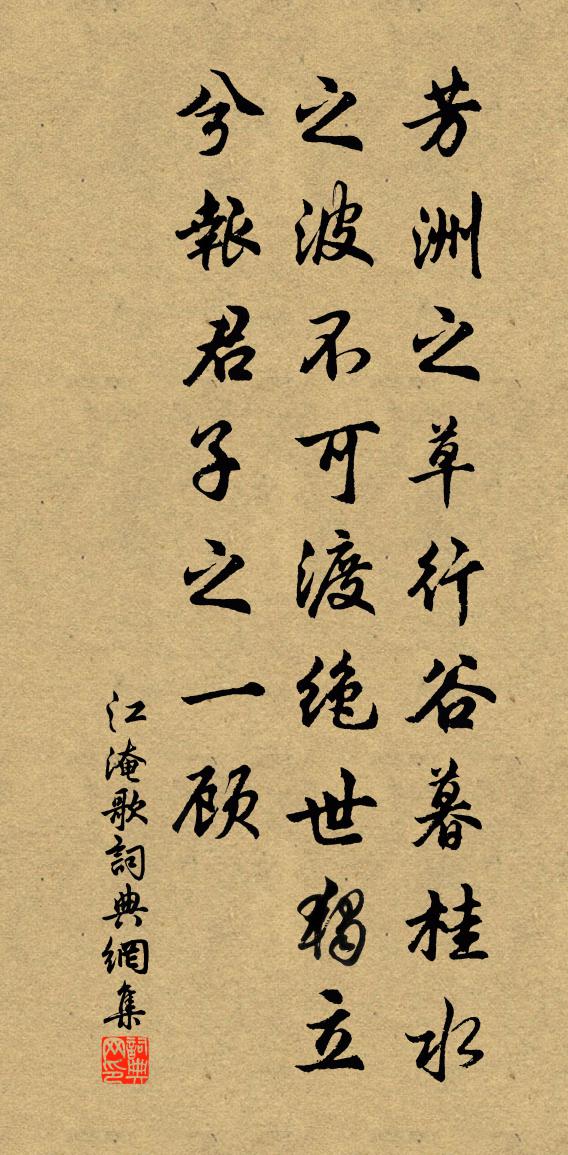 芳洲之草行谷暮桂水
之波不可渡絶世獨立
兮報君子之一顾
江淹歌詞典網集
詞典
网印